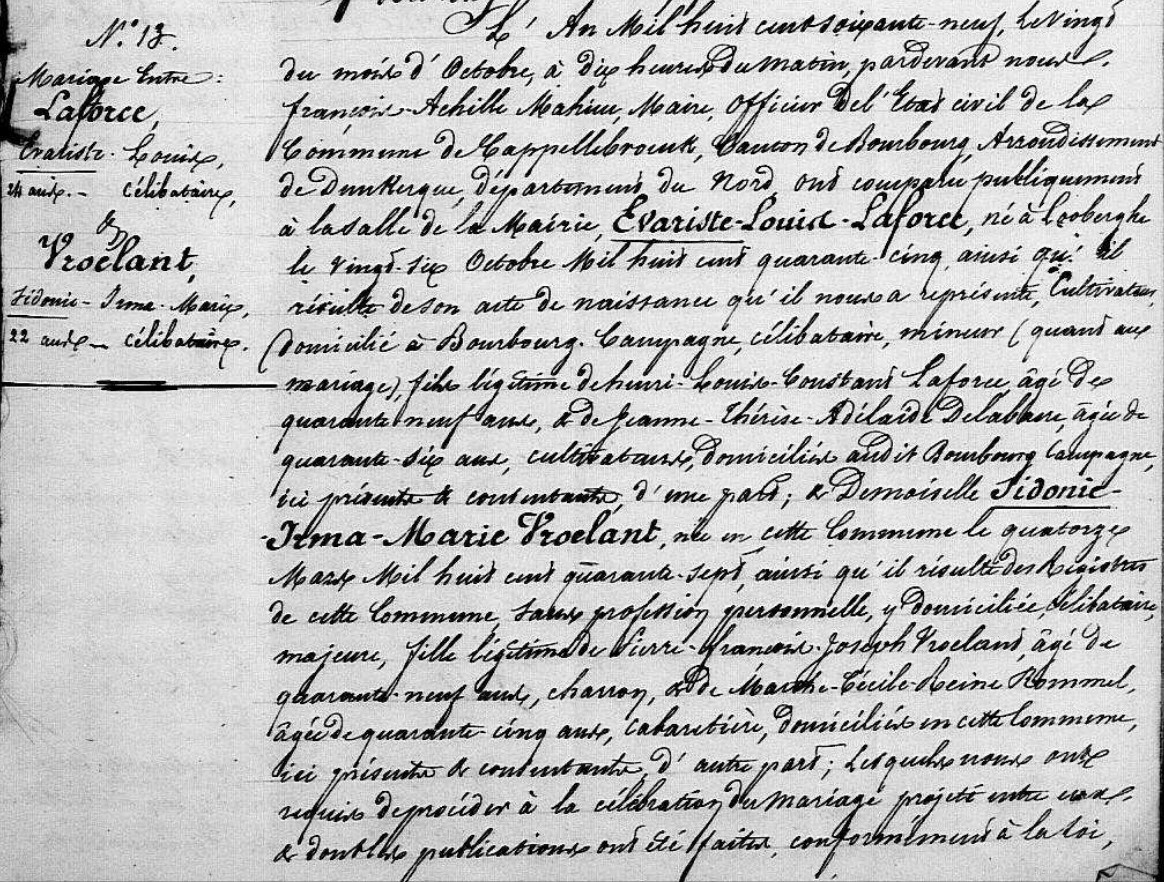 N.° 13.
Mariage Entre:
Laforce,
Evariste-Louis,
24 ans.- Célibataire,
&
Vroëlant,
Sidonie-Irma-Marie,
22 ans- Célibataire.
L'An Mil huit cent soixante-neuf, le vingt
du mois d'Octobre, à dix heures du matin, pardevant nous
françois-Achille Mahieu, Maire, officier de l'Etat civil de la
Commune de Cappellebrouck, Canton de Bourbourg, Arrondissement
de Dunkerque, département du Nord, ont comparu publiquement
à la salle de la Mairie, Evariste-Louis-Laforce, né à Looberghe
le vingt-six Octobre Mil huit cent quarante-cinq, ainsi qu'il
résulte de son acte de naissance qu'il nous a représenté, Cultivateur,
domicilié à Bourbourg-Campagne, célibataire, mineur (quant au
mariage), fils légitime de henri-Louis-Constant Laforce, âgé de
quarante-neuf ans, & de Jeanne-Thérèse-Adélaïde Delabaere, âgée de
quarante-six ans, cultivateurs, domiciliés audit Bourbourg Campagne,
ici présents & consentants, d'une part; & Demoiselle Sidonie-
-Irma-Marie Vroëlant, née en cette Commune le quatorze
Mars Mil huit cent quarante-sept, ainsi qu'il résulte des Registres
de cette Commune, sans profession personnelle, y domiciliée, célibataire,
majeure, fille légitime de Pierre-françois-Joseph Vroëlant, âgé de
quarante-neuf ans, charron, & de Marthe-Cécile-Reine Rommel,
âgée de quarante-cinq ans, cabaretière, domiciliés en cette Commune,
ici présents & consentants, d'autre part; Lesquels nous ont
requis de procéder à la célébration du mariage projeté entre eux.
& doubles publications ont été faites, conformément à la loi,